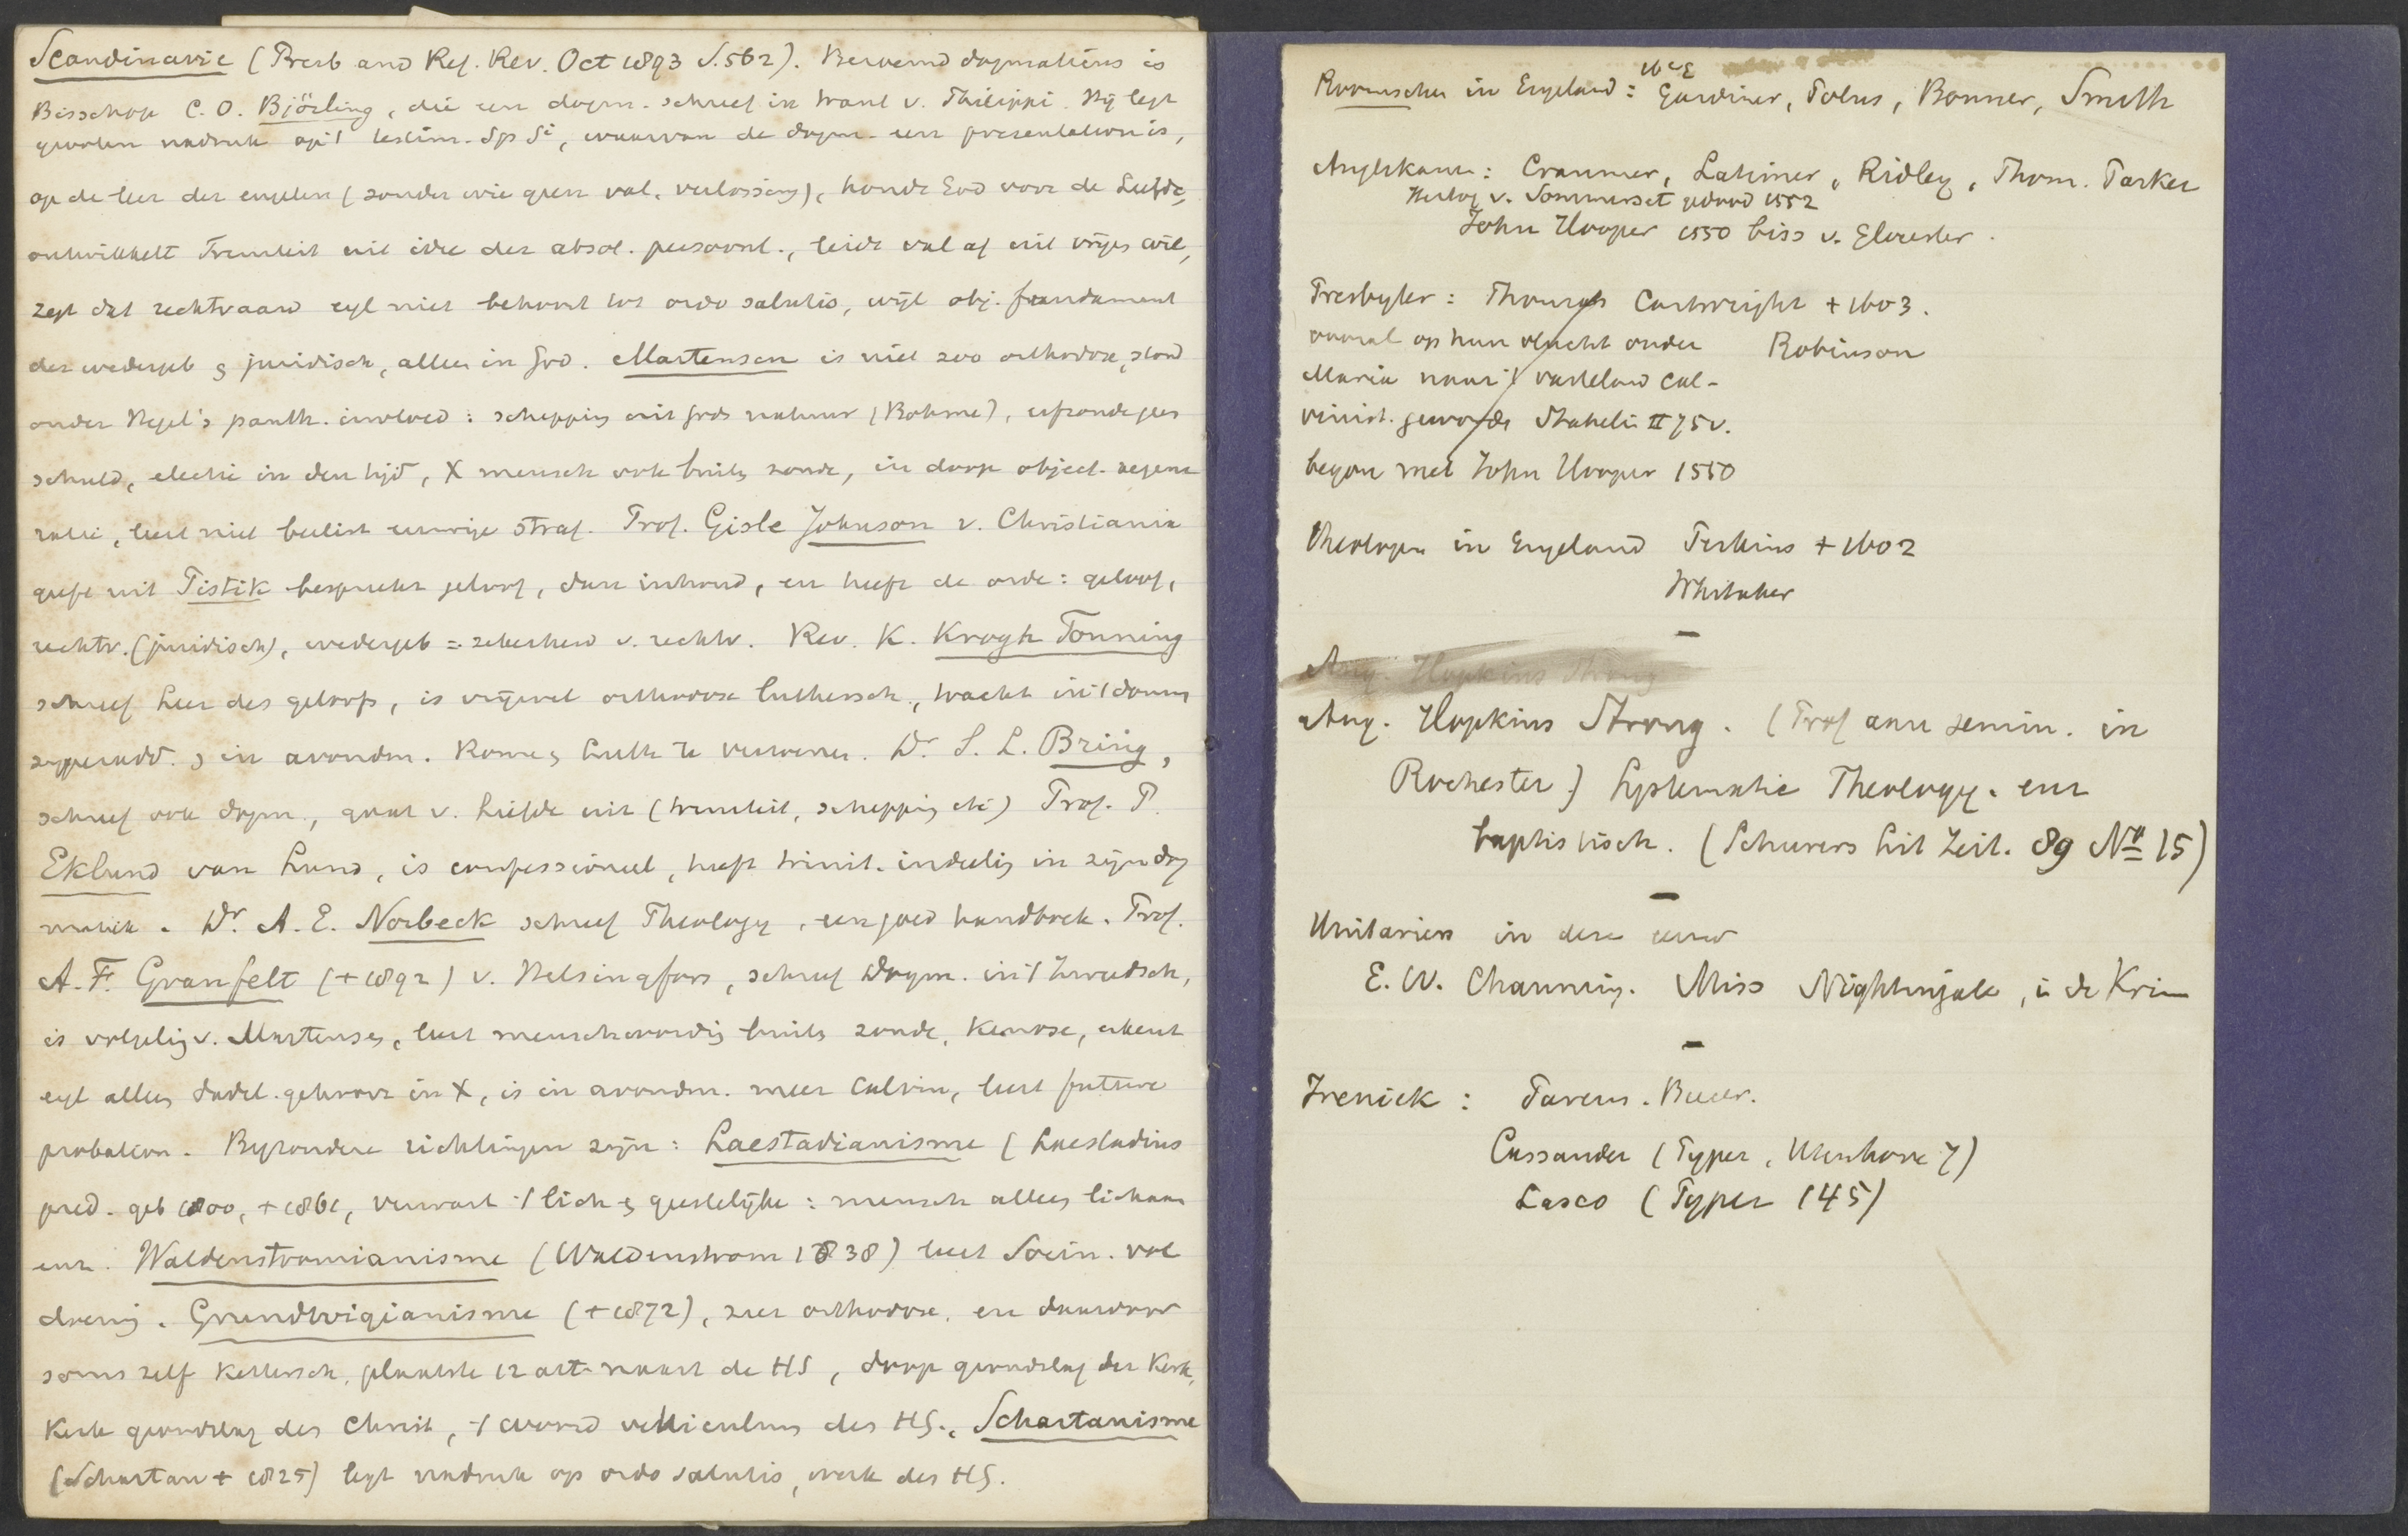 Scandinavie (Presb and Ref. Rev. Oct 1893 S.562). Beroemd dogmaticus is
Bisschop C. O. Björling, die een dogm. schreef in trant v. Philippi. Hij legt
grooten nadruk op 't testim. Sps Si, waarvan de dogm. een presentation is,
op de leer der engelen (zonder wie geen val, verlossing), houdt God voor de Liefde,
ontwikkelt Triniteit uit idee der absol. persoonl., leidt val af uit vrijen wil,
zegt dat rechtvaard egl niet behoort tot ordo salutis, wijl obj. fundament
der wedergeb & juridisch, alleen in God. Martensen is niet zoo orthodox, stond
onder Hegel's panth. invloed: schepping uit Gods natuur (Böhme), erfzonde geen
schuld, electie in den tijd, X mensch ook buiten zonde, in doop object. regene
ratie, leert niet beslist eeuwige straf. Prof. Gisle Johnson v. Christiania
geeft uit Pistik bespreekt geloof, dan inhoud, en heeft de orde: geloof,
rechtv. (juridisch), wedergeb = zekerheid v. rechtv. Rev. K. Krogh Tonning
schreef Leer des geloofs, is vrijwel orthodox luthersch, tracht in 't
& in avondm. Rome & Luth te vereenen. Dr S. L. Bring,
schreef ook dogm., gaat v. Liefde uit (triniteit, schepping etc) Prof. P.
Eklund van Lund, is confessioneel, heeft trinit. indeeling in zijn dog
matiek. Dr. A. E. Norbeck schreef Theology, een goed handboek. Prof.
A. F. Granfelt (+ 1892) v. Helsingfors, schreef Dogm. in 't Zweedsch,
is volgeling v. Martensen, leert menschwording buiten zonde, Kenose, erkent
egl alleen gehoorz in X, is in avondm. meer Calvin, leert future
probation. Byzondere richtingen zijn: Laestadianisme (Laestadius
pred. geb 1800, + 1861, verwart 't lich & geestelijke: mensch alleen lichaam
enz. Waldenstromianisme (Waldenstrom 1838) leert Socin. vol
doening. Grundtvigianisme (+ 1872), zeer orthodox, en daardoor
soms zelf kettersch, plaatste 12 art naast de HS, doop grondslag der Kerk,
Kerk grondslag des Christ, 't woord vehiculum des HG., Schartanisme
(Schartau + 1825) legt nadruk op ordo salutis, werk des HG.
Roomschen in Engeland: Gardiner, Polus, Bonner, Smith
16e E
Anglikaan: Cranmer, Latimer, Ridley, Thom. Parker
Hertog v. Sommerset gedood 1552
John Hooper 1550 biss v. Glocester.
Presbyter: Thomas Cartwright + 1603.
vooral op hun vlucht onder Robinson
Maria naar 't vasteland cal-
vinist. geworden Stahelin II 75v.
begon met John Hooper 1550
Theologen in Engeland Perkins + 1602
Whitaker
—
Aug. Hopkins Strong
Aug. Hopkins Strong. (Prof aan semin. in
Rochester) Systematic Theology. enz
baptistisch. (Schurers Lit Zeit. 89 No 15)
—
Unitariers in deze eeuw
E. W. Channing. Miss Nightingale, in de Krim
—
Irenick: Pareus. Bucer.
Cassander (Typer, Utenhove 7)
Lasco (Typer 145)